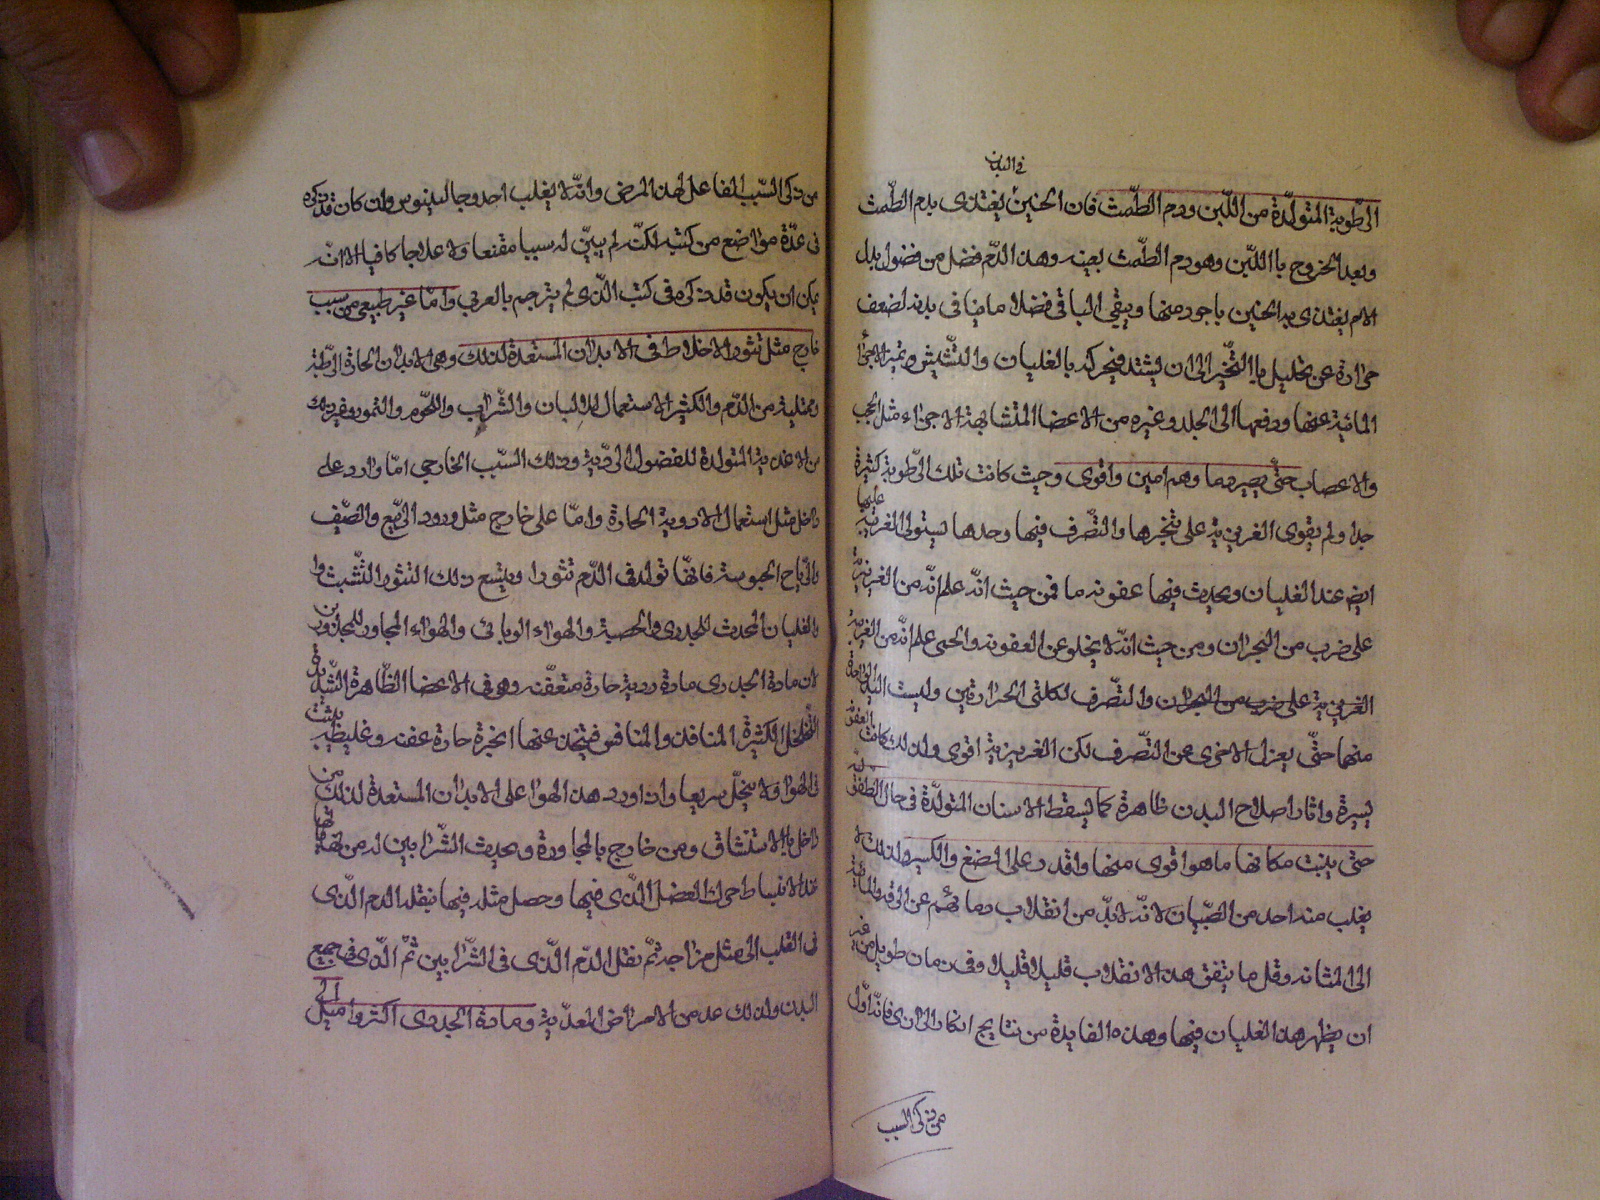 في البدن
الرطوبة المتولدة من اللبن ودم الطمث فان الجنين يغتذى بدم الطمث
وبعد الخروج باللبن وهو دم الطمث بعينه وهذا الدم فضل من فضول بدن
الام يغتذى به الجنين باجود منها ويبقى الباقى فضلا مائيا فى بدنه لضعف
حرارة عن تحليل بالتبخير الى ان يشتد فيحركه بالغليان والنشيش وتميز الاجزاء
المائية عنها ودفعها الى الجلد وغيره من الاعضا المتشابهة الاجزاء مثل الحجب
والاعصاب حتى يصير دما وهم امين واقوى وحيث كانت تلك الرطوبة كثيرة
جدا ولم يقوى الغريزية على تبخرها والتصرف فيها وحدها يستولى الغريبة عليها
ايض عند الغليان ويحدث فيها عفونه ما فمن حيث انه علم انه من الغريزية
على ضرب من البحران ومن حيث انه لا يخلو عن العفونه والحمى علم انه من الغريبة
الغريزية على ضرب من البحران والتصرف لكلتى الحرارتين وليست اليد الواحدة
منهما حتى يعزل الاخرى عن التصرف لكن الغريزية اقوى ولذلك كانت العفونة
يسيرة واثار اصلاح البدن ظاهرة كما يسقط الاسنان المتولدة فى حال الطفولية
حتى ينبت مكانها ما هو اقوى منها واقدر على المضغ والكسر ولذلك لا
يغلب منه احد من الصبيان لانه لا بد من انقلاب دمائهم عن الرقة والمائية
الى المتانه وقل ما يتفق هذا الانقلاب قليلا قليلا وفى زمان طويل من غير
ان يظهر هذا الغليان فيها وهذه الفايدة من نتايج افكار الرازى فانه اول
من ذكر السبب
من ذكر السبب الفاعل لهذا المرض وانه لا يغلب احد وجالينوس وان كان قد ذكره
فى عدة مواضع من كتبه لكنه لم يبين له سببا مقنعا ولا علاجا كافيا الا انه
يمكن ان يكون قد ذكره فى كتبه الذى لم يترجم بالعربى واما غير طبيعى من سبب
خارج مثل تثور الاخلاط فى الابدان المستعدة لذلك وهى الابدان الحارة الرطبة
وممتلية من الدم والكثير الاستعمال للالبان والشراب واللحوم والتمور وغير ذلك
من الاغذية المتولدة للفضول الردية وذلك السبب الخارجى اما وارد على
داخل مثل استعمال الادوية الحارة واما على خارج مثل ورود الربيع والصيف
والرياح الجنوبية فانها تولد فى الدم تثورا ويتبع ذلك التثور النشيش و
والغليان المحدث للجدرى والحصبة والهواء الوبائى والهواء المجاور للمجدورين
لان مادة الجدرى مادة ردية حارة متعفنه وهو فى الاعضا الظاهرة الشديدة
التخلخل الكثيرة المنافذ والمنافس فيتبخر عنها ابخرة حارة عفنه وغليظه يبث
فى الهوا ولا يتحلل سريعا واذا ورد هذا الهوا على الابدان المستعدة لذلك من
داخل بالاستنشاق ومن خارج بالمجاورة ويحدث الشرايين له من
عند الانبساط الفضل الذى فيها وحصل مثله فيها فينقلب الدم الذى
فى القلب الى مثل مزاجه ثم نقل الدم الذى فى الشرايين ثم الذى فى جميع
البدن ولذلك عد من الامراض المعدية ومادة الجدرى اكثر واميل الى